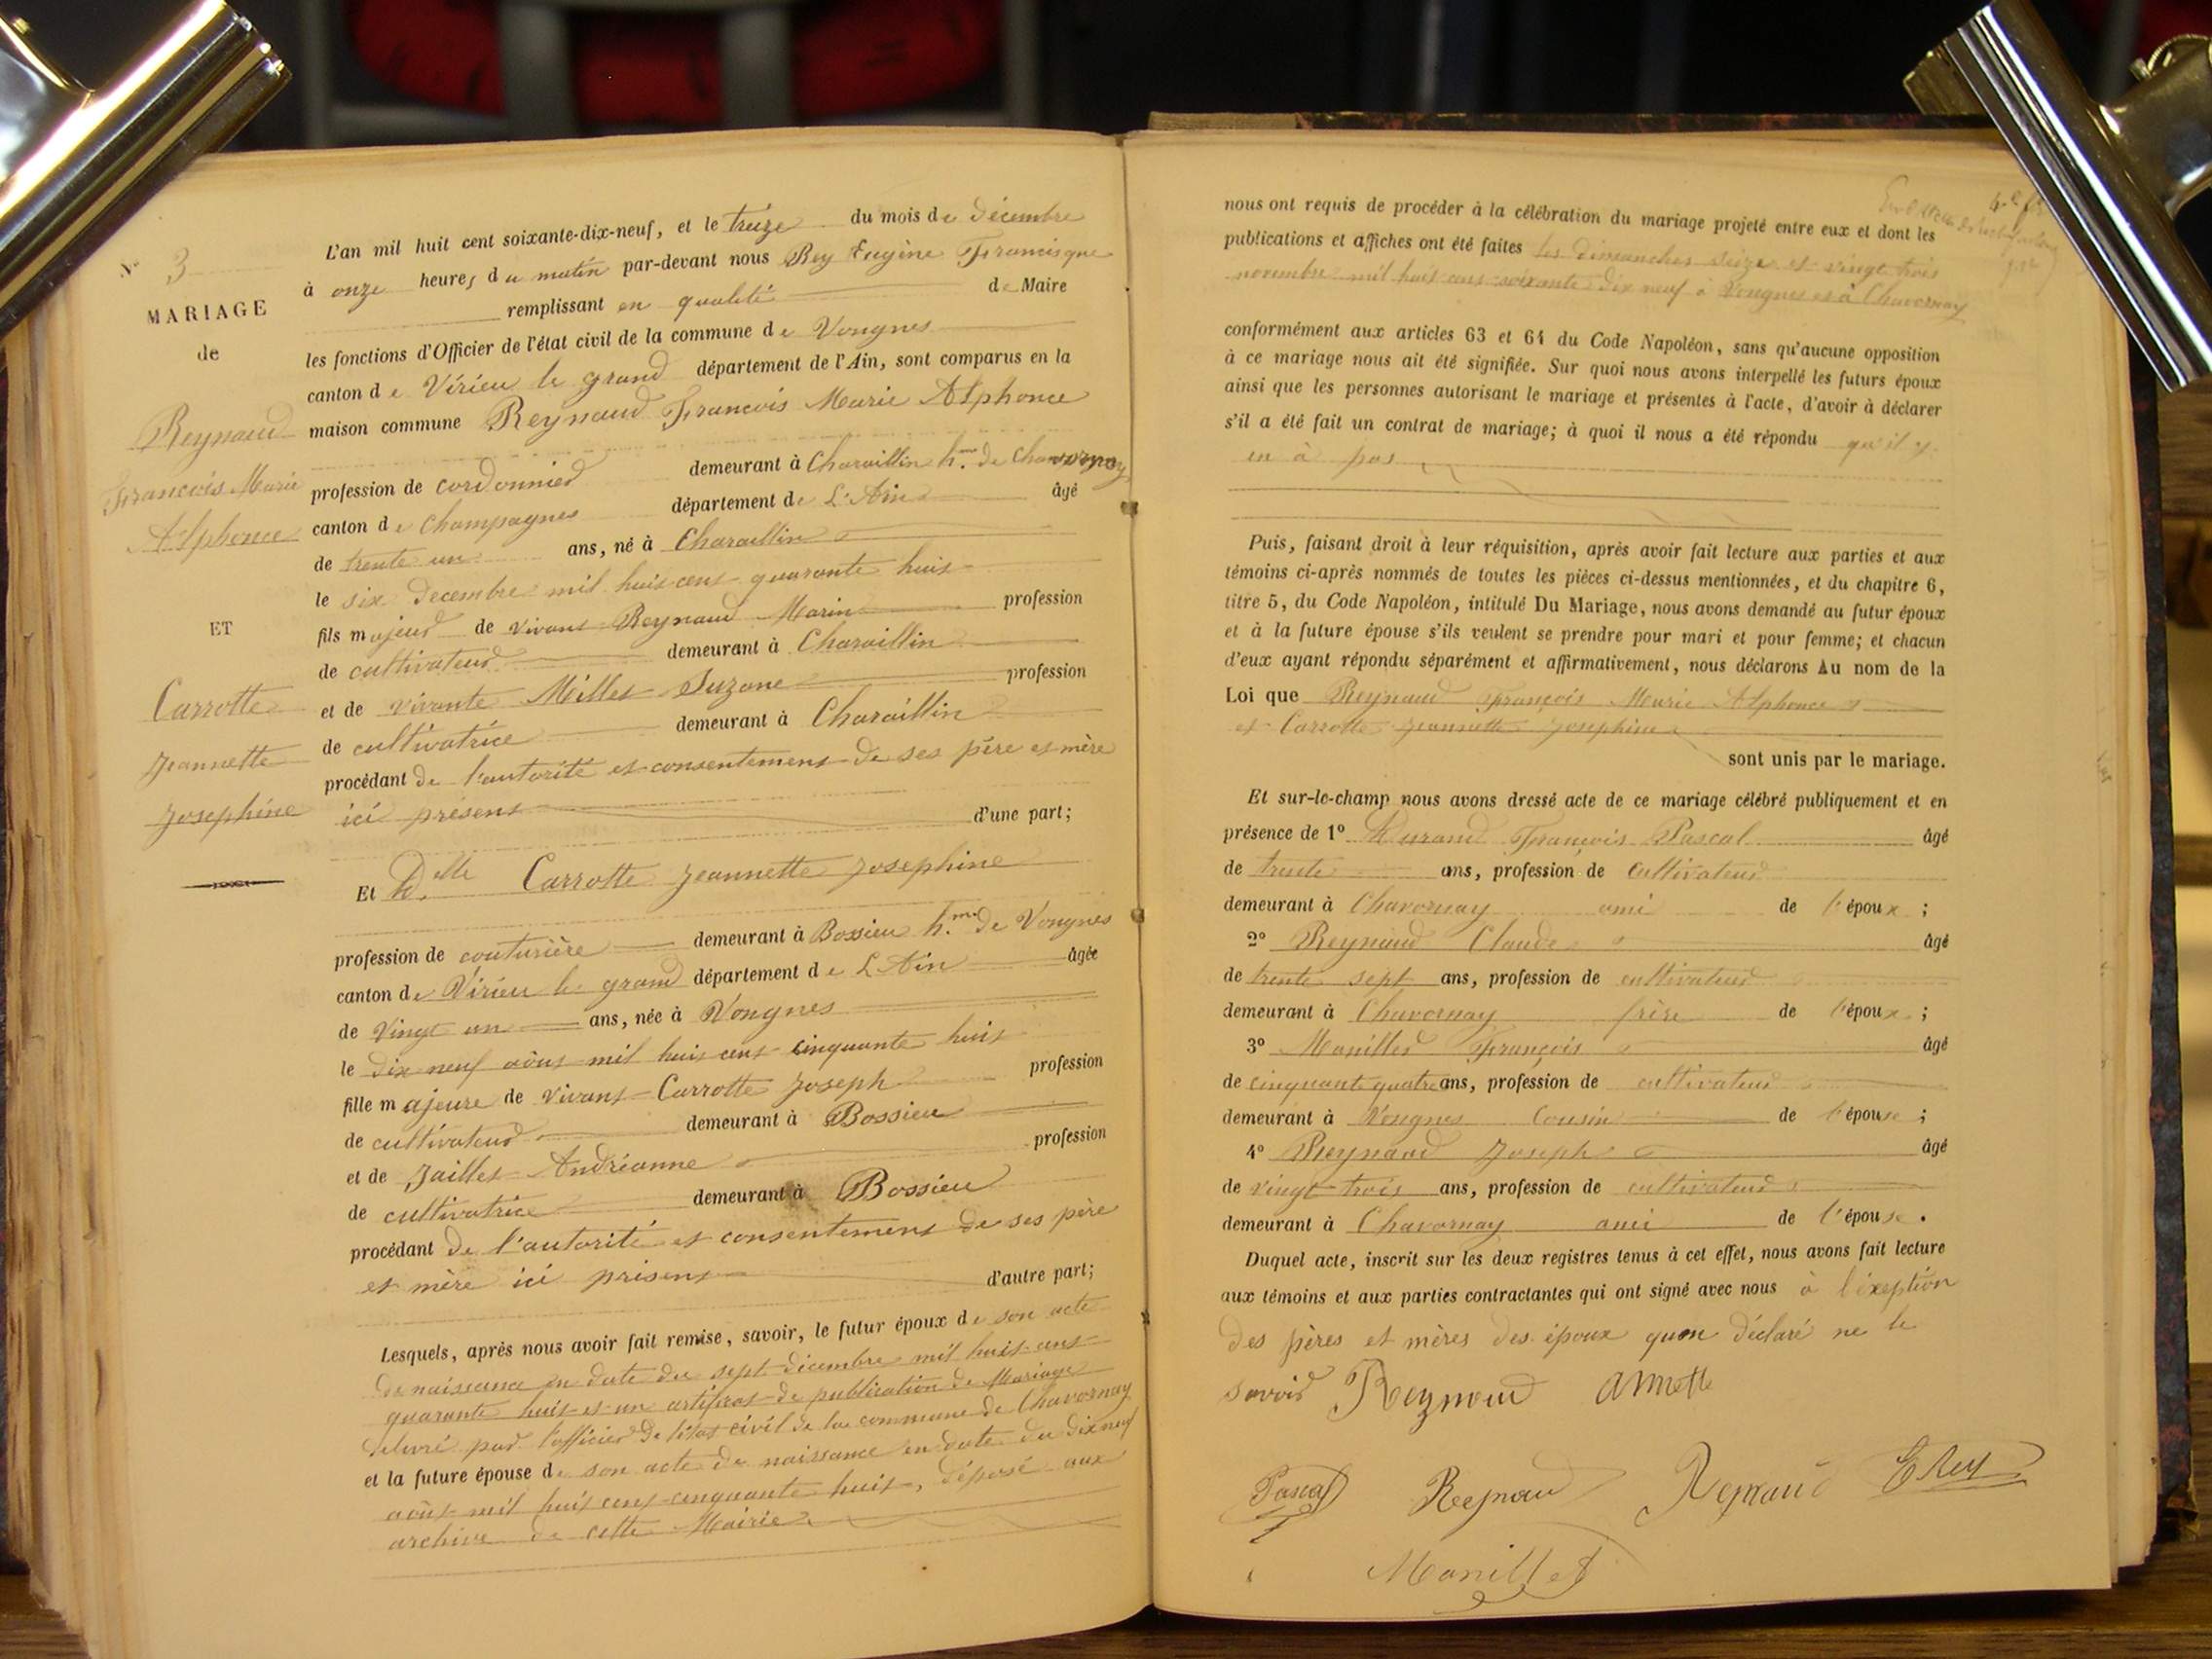 N° 3
MARIAGE
de
Reynaud
François Marie
Alphonce
ET
Carrotte
Jeannette
Josephine
L'an mil huit cent soixante-dix-neuf, et le treize du mois de décembre
à onze heures du matin par-devant nous Rey Eugène Francisque
remplissant en qualité de Maire
les fonctions d'Officier de l'état civil de la commune de Vongnes
canton de Virieu le grand département de l'Ain, sont comparus en la
maison commune Reynaud François Marie Alphonce
profession de cordonnier demeurant à Charaillin h.au de Chavornay
canton de Champagnes département de L'Ain âgé
de trente un ans, né à Charaillin
le six decembre mil huit cent quarante huit
fils majeur de vivant Reynaud Marin profession
de cultivateur demeurant à Charaillin
et de vivante Millet Suzane profession
de cultivatrice demeurant à Charaillin
procédant de l'autorité et consentement de ses père et mère
ici présent d'une part;
Et D.elle Carrotte Jeannette Josephine
profession de couturière demeurant à Bossieu h.au de Vongnes
canton de Virieu le grand département de L'Ain âgée
de vingt un ans, née à Vongnes
le dix neuf août mil huit cent cinquante huit
fille majeure de vivant Carrotte Joseph profession
de cultivateur demeurant à Bossieu
et de Jaillet Andréanne profession
de cultivatrice demeurant à Bossieu
procédant de l'autorité et consentement de ses père
et mère ici présent d'autre part;
Lesquels, après nous avoir fait remise, savoir, le futur époux de son acte
de naissance en date du sept décembre mil huit cent
quarante huit et un artificat de publication de Mariage
délivré par l'officier de l'état civil de la commune de Chavornay
et la future épouse de son acte de naissance en date du dix neuf
août mil huit cent cinquante huit, déposé aux
archive de cette Mairie
nous ont requis de procéder à la célébration du mariage projeté entre eux et dont les
publications et affiches ont été faites les dimanches seize et vingt trois
novembre mil huit cent soixante dix neuf à Vongnes et à Chavornay
conformément aux articles 63 et 64 du Code Napoléon, sans qu'aucune opposition
à ce mariage nous ait été signifiée. Sur quoi nous avons interpellé les futurs époux
ainsi que les personnes autorisant le mariage et présentes à l'acte, d'avoir à déclarer
s'il a été fait un contrat de mariage; à quoi il nous a été répondu qu'il y
en à pas
Puis, faisant droit à leur réquisition, après avoir fait lecture aux parties et aux
témoins ci-après nommés de toutes les pièces ci-dessus mentionnées, et du chapitre 6,
titre 5, du Code Napoléon, intitulé Du Mariage, nous avons demandé au futur époux
et à la future épouse s'ils veulent se prendre pour mari et pour femme; et chacun
d'eux ayant répondu séparément et affirmativement, nous déclarons Au nom de la
Loi que Reynaud François Marie Alphonce
et Carrotte Jeannette Josephine
sont unis par le mariage.
Et sur-le-champ nous avons dressé acte de ce mariage célébré publiquement et en
présence de 1° Durand François Pascal âgé
de trente ans, profession de cultivateur
demeurant à Chavornay ami de l'époux;
2° Reynaud Claude âgé
de trente sept ans, profession de cultivateur
demeurant à Chavornay frère de l'époux;
3° Manillet François âgé
de cinquante quatre ans, profession de cultivateur
demeurant à Vongnes cousin de l'épouse;
4° Reynaud Joseph âgé
de vingt trois ans, profession de cultivateur
demeurant à Chavornay ami de l'épouse.
Duquel acte, inscrit sur les deux registres tenus à cet effet, nous avons fait lecture
aux témoins et aux parties contractantes qui ont signé avec nous à l'exeption
des pères et mères des époux quon déclaré ne le
savoir Reynaud Annette
Pascal Reynaud Reynaud E Rey
Manillet